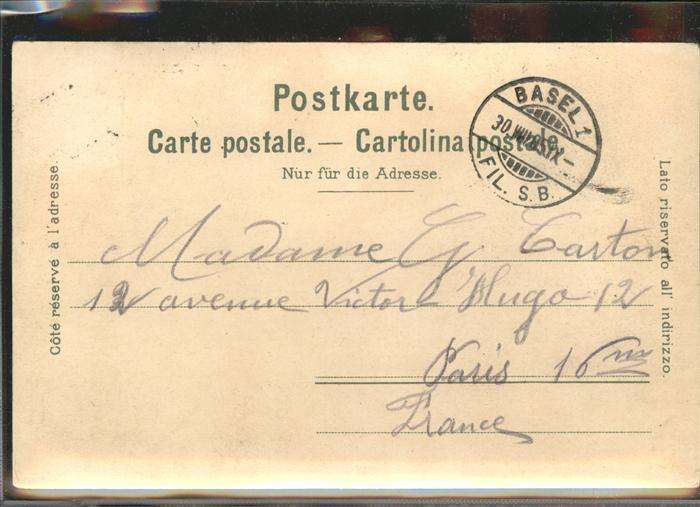 Postkarte.
Carte postale. — Cartolina postale.
Nur für die Adresse.
Côté réservé à l'adresse.
Lato riservato all' indirizzo.
BASEL 1
FIL. S. B.
Madame G Carton
12 avenue Victor Hugo 12
Paris 16 me
France